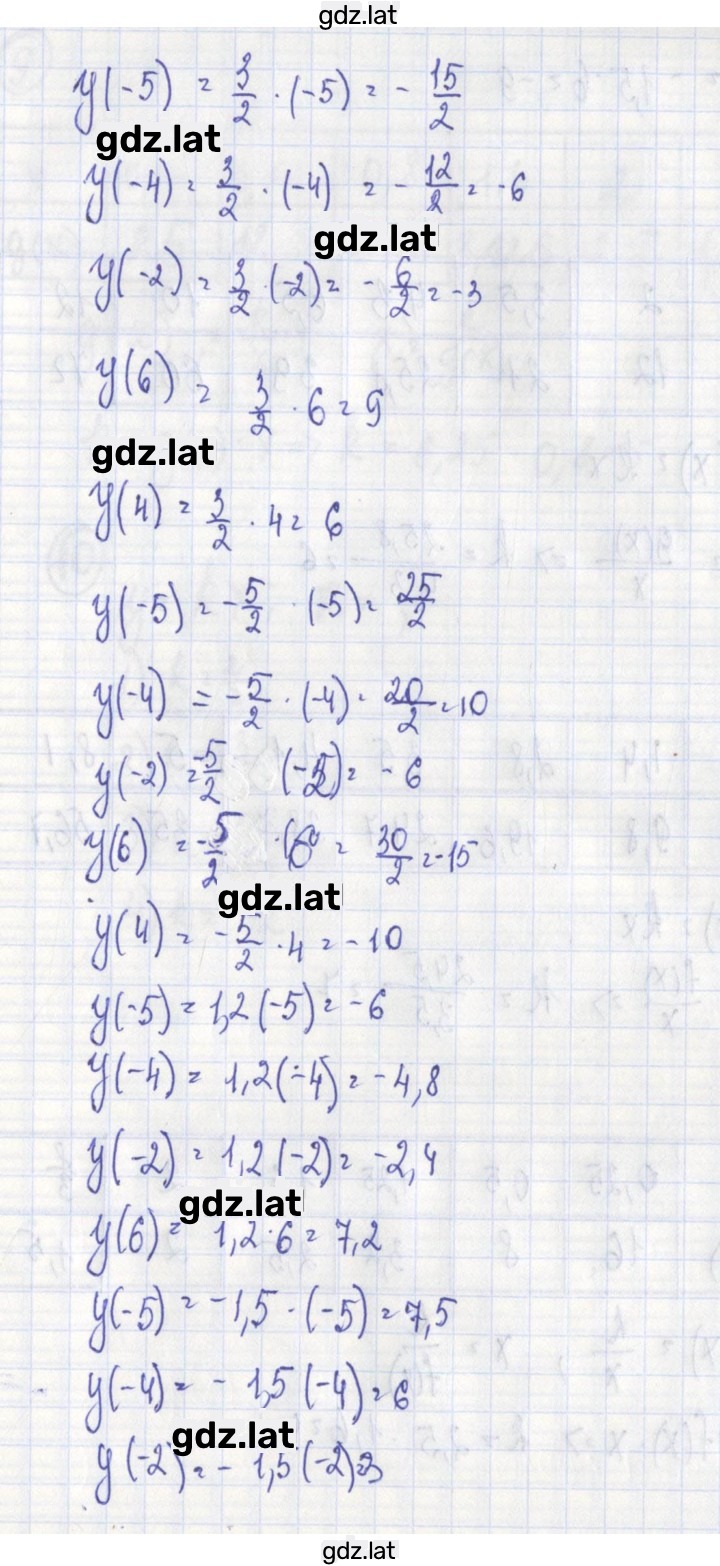 gdz.lat
y(-5) = 3/2 · (-5) = - 15/2
gdz.lat
y(-4) = 3/2 · (-4) = - 12/2 = -6
gdz.lat
y(-2) = 3/2 · (-2) = - 6/2 = -3
y(6) = 3/2 · 6 = 9
gdz.lat
y(4) = 3/2 · 4 = 6
y(-5) = - 5/2 · (-5) = 25/2
y(-4) = - 5/2 · (-4) = 20/2 = 10
y(-2) = -5/2 (-2) = - 6
y(6) = -5/2 · 6 = 30/2 = -15
gdz.lat
y(4) = - 5/2 · 4 = -10
y(-5) = 1,2 (-5) = -6
y(-4) = 1,2 (-4) = -4,8
y(-2) = 1,2 · (-2) = -2,4
gdz.lat
y(6) = 1,2 · 6 = 7,2
y(-5) = -1,5 · (-5) = 7,5
y(-4) = - 1,5 (-4) = 6
gdz.lat
y(-2) = - 1,5 (-2) = 3
gdz.lat